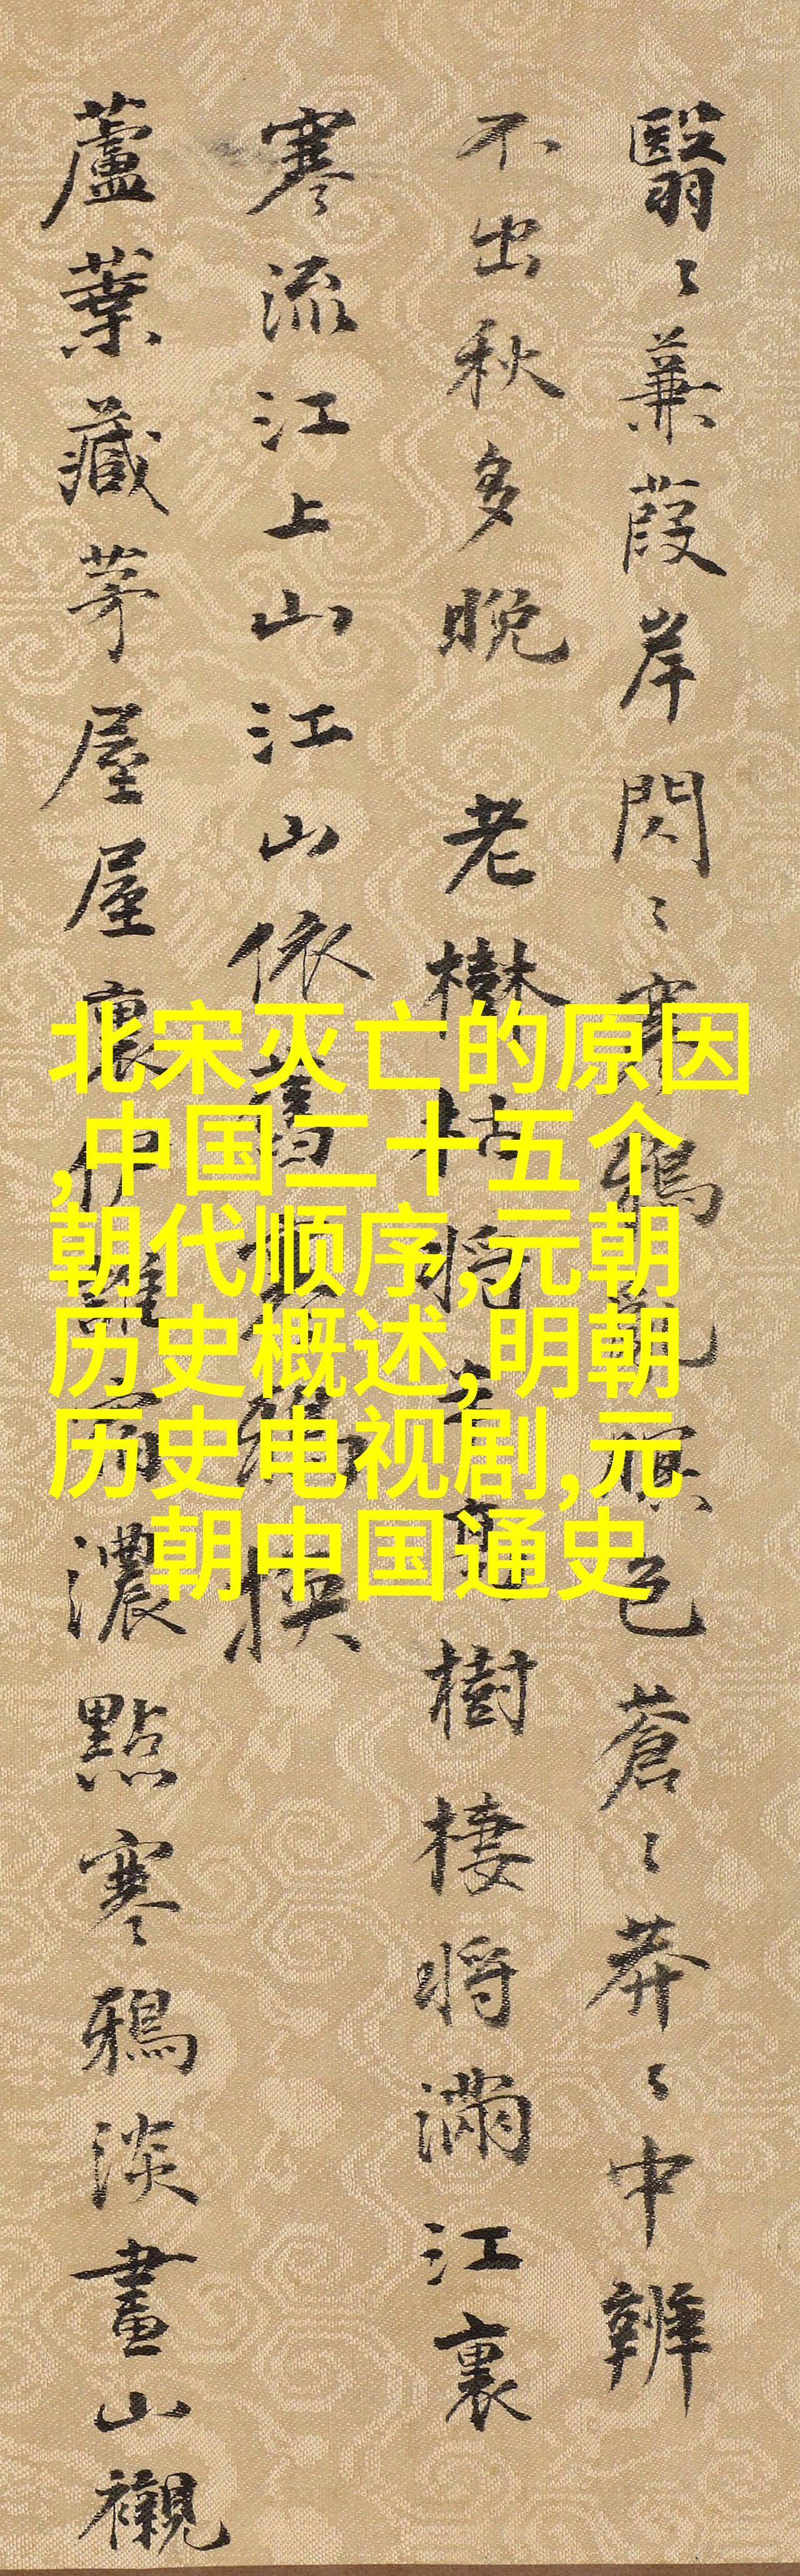 翳〻蒹葭岸閃〻寒鴉亂暝色蒼〻莽〻中辨
不出秋多晚 老樹枯將樹棲將滿江裏
寒流江上山江山依舊換
蘆葉藏茅屋屋裏伊誰宿濃點寒鴉淡畫山襯
北宋灭亡的原因
,中国二十五个
朝代顺序,元朝
历史概述,明朝
历史电视剧,元
朝中国通史